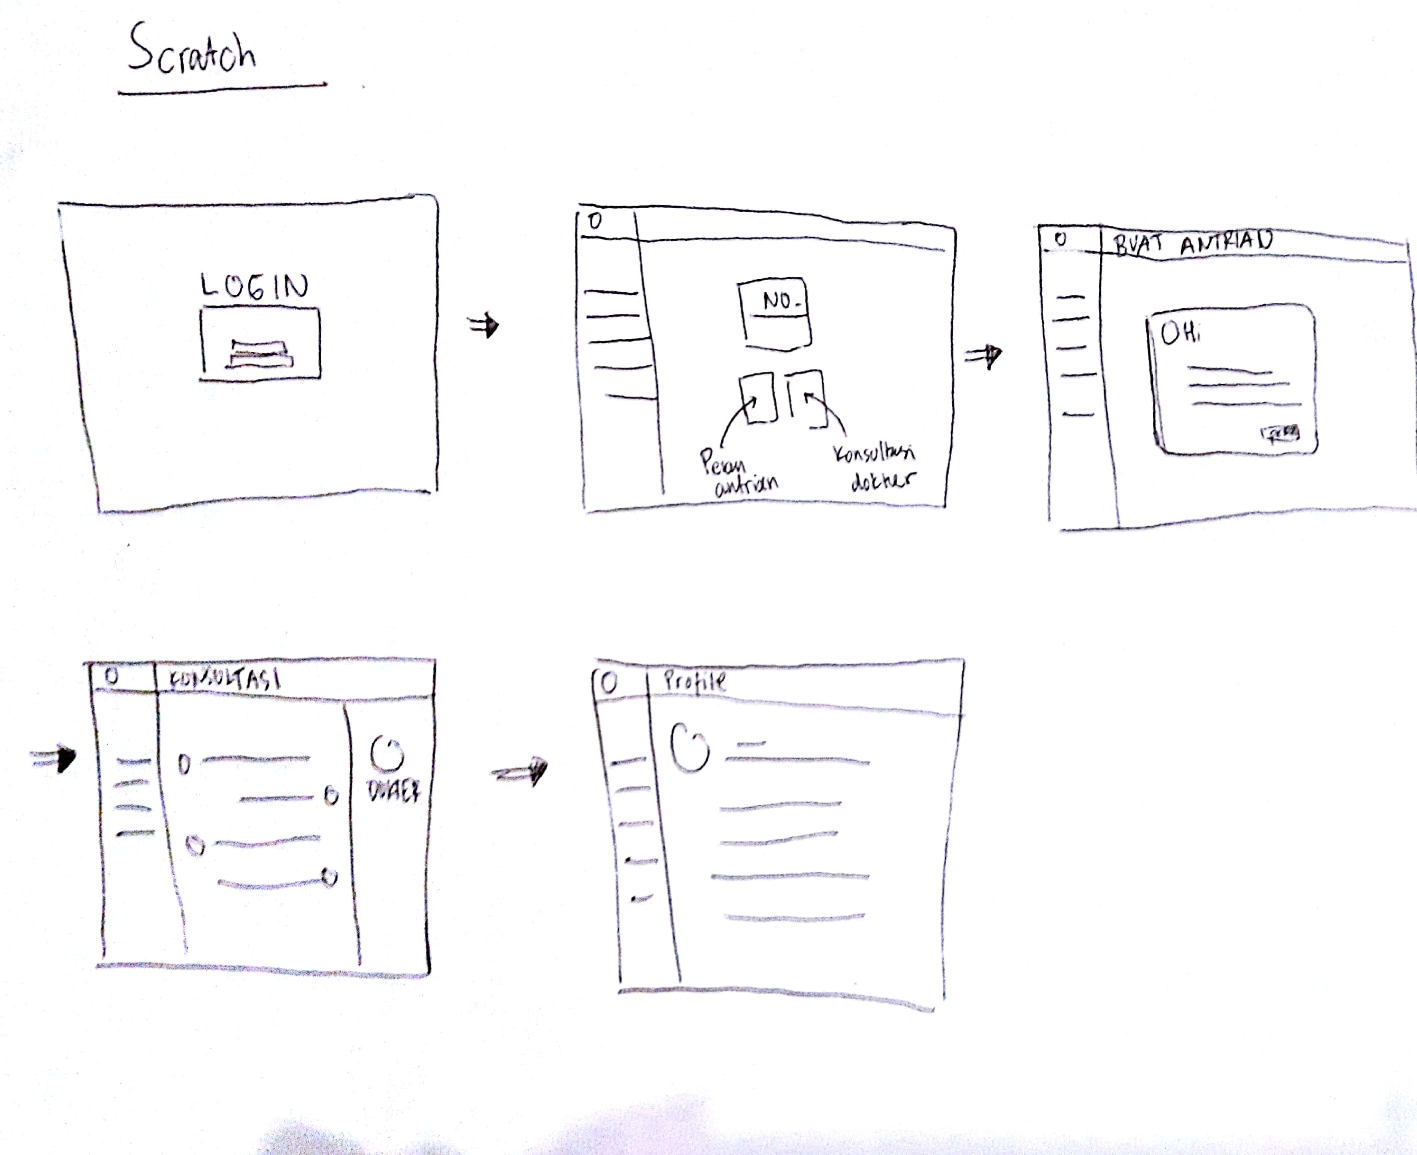 Scratch
LOGIN
NO.
Pesan
antrian
Konsultasi
dokter
BUAT ANTRIAN
Hi
KONSULTASI
DOKTER
Profile